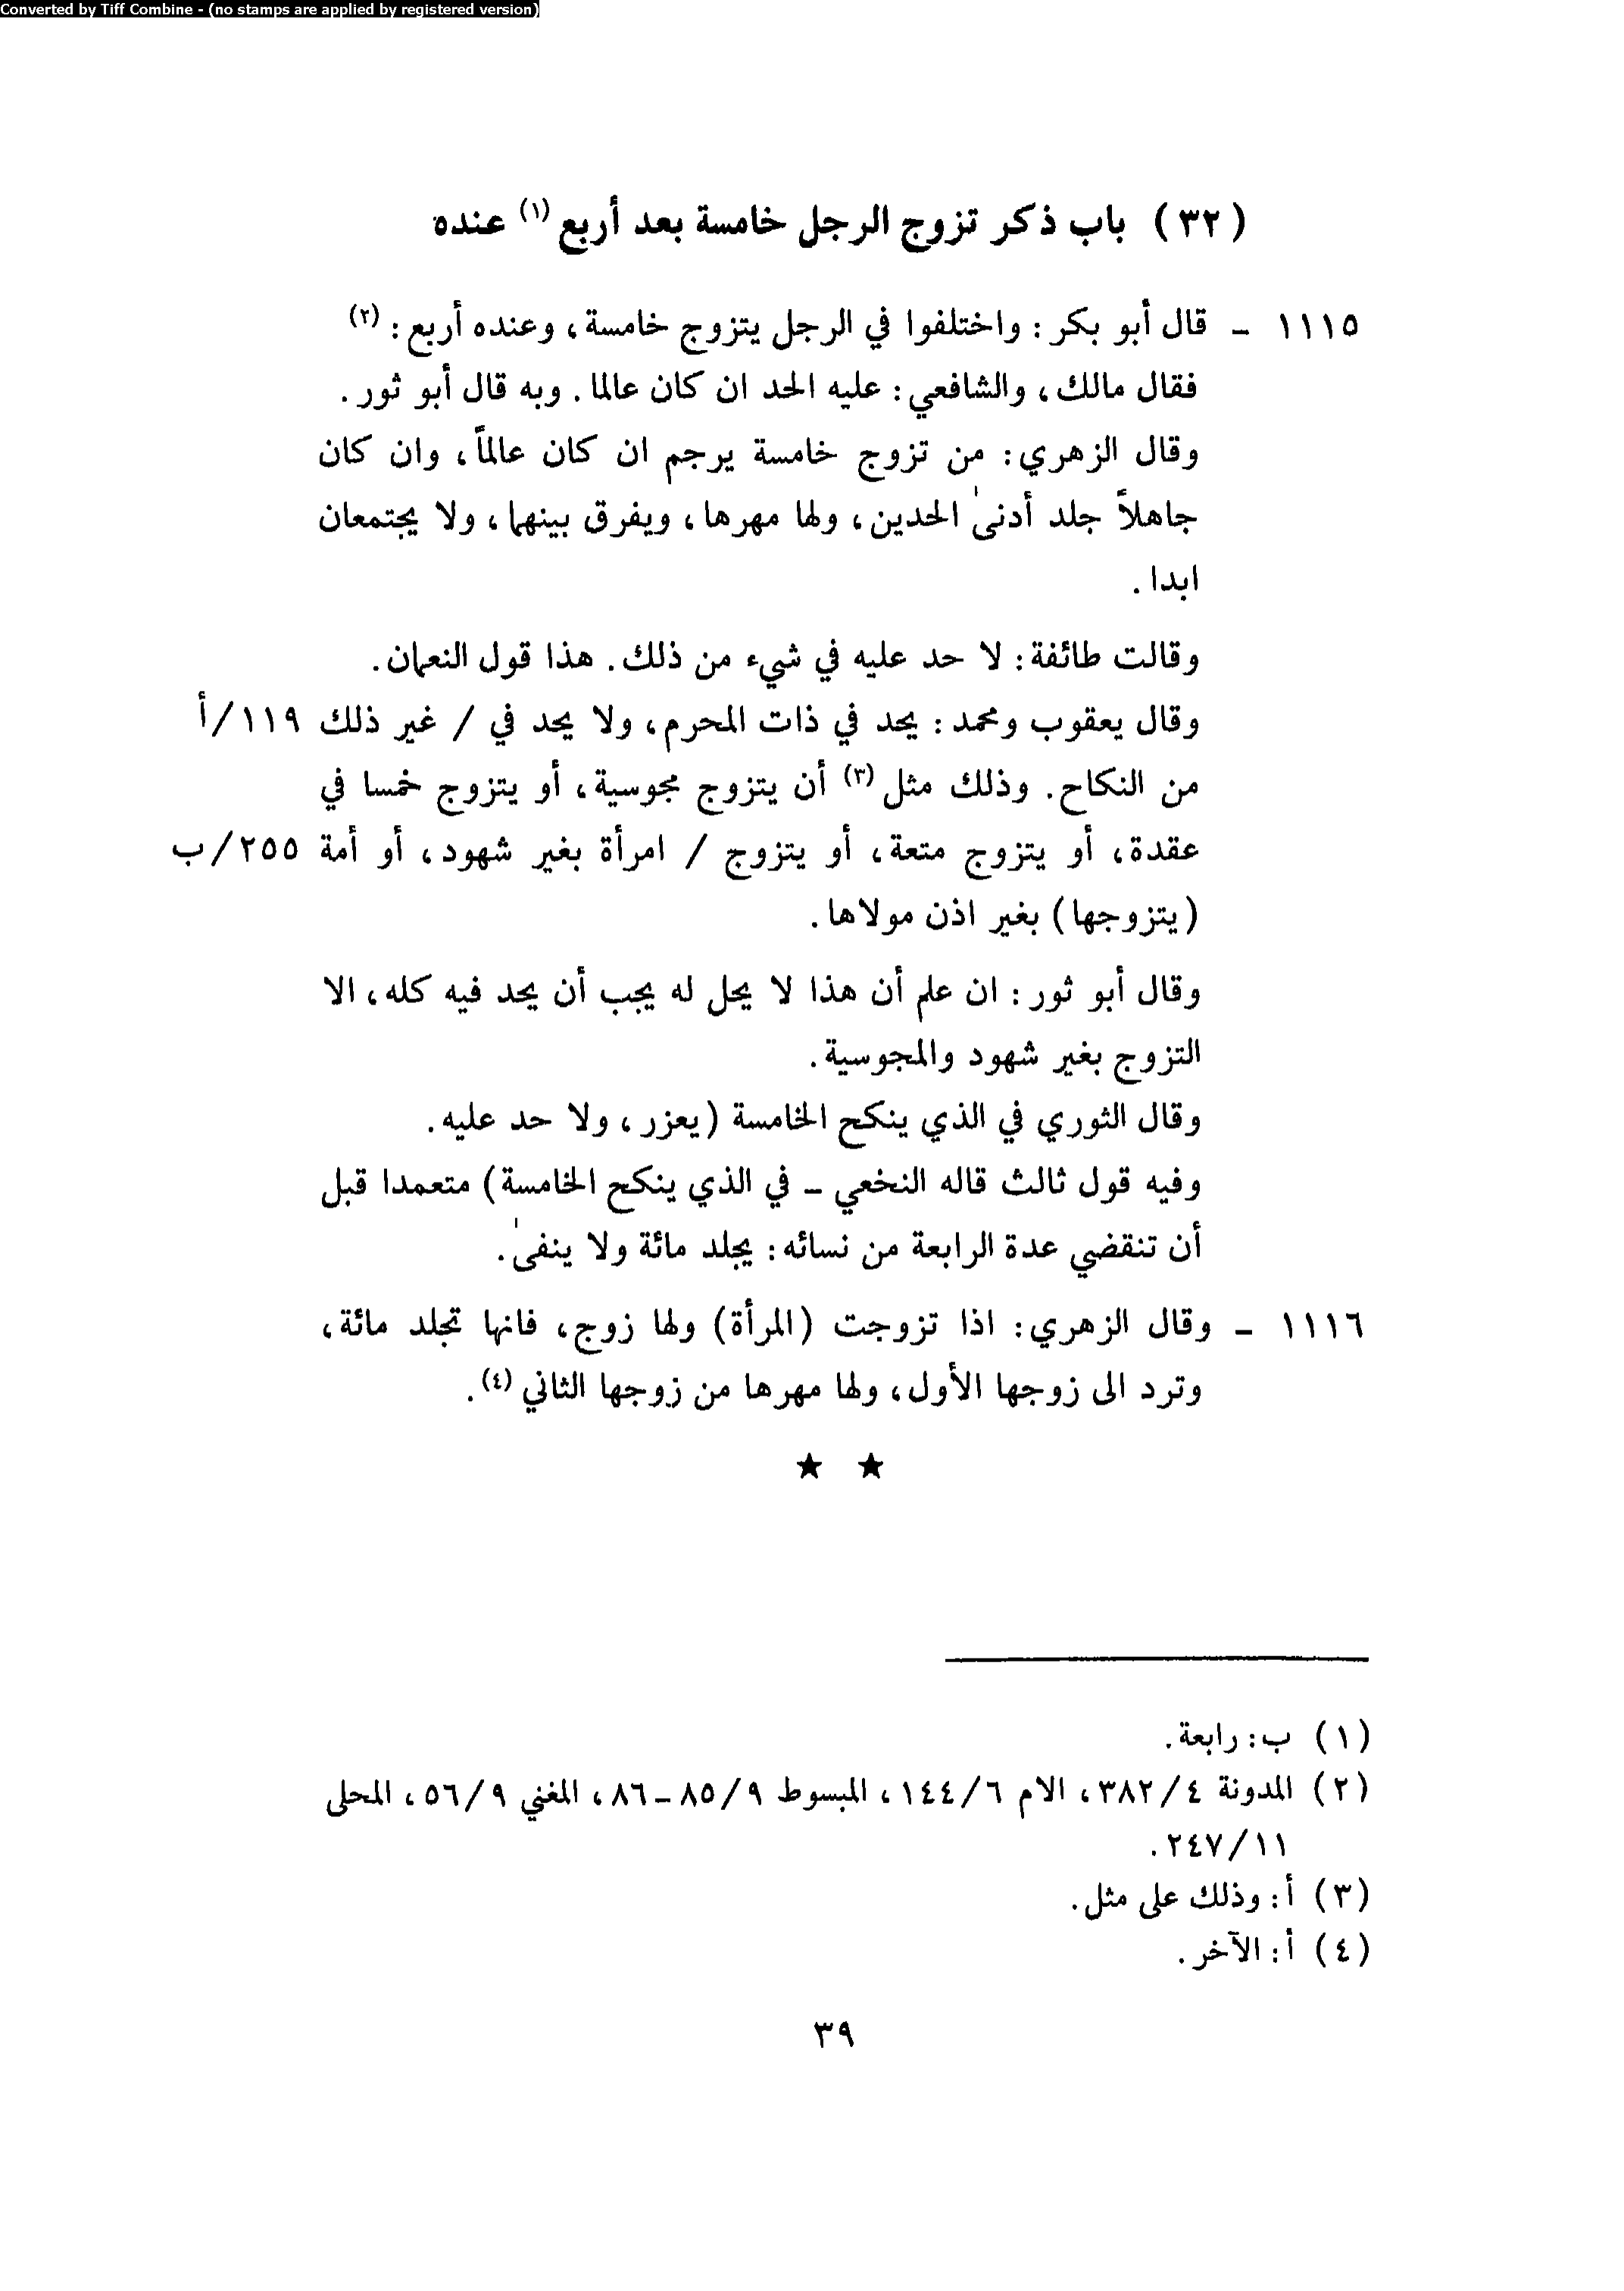 Converted by Tiff Combine - (no stamps are applied by registered version)
(٣٢) باب ذكر تزوج الرجل خامسة بعد أربع (١) عنده
١١١٥ - قال أبو بكر : واختلفوا في الرجل يتزوج خامسة، وعنده أربع: (٢)
فقال مالك، والشافعي: عليه الحد ان كان عالما. وبه قال أبو ثور.
وقال الزهري: من تزوج خامسة يرجم ان كان عالماً، وان كان
جاهلاً جلد أدنىٰ الحدين، ولها مهرها، ويفرق بينهما، ولا يجتمعان
ابدا.
وقالت طائفة: لا حد عليه في شيء من ذلك. هذا قول النعمان.
وقال يعقوب ومحمد: يحد في ذات المحرم، ولا يحد في / غير ذلك ١١٩/أ
من النكاح. وذلك مثل (٣) أن يتزوج مجوسية، أو يتزوج خمسا في
عقدة، أو يتزوج متعة، أو يتزوج / امرأة بغير شهود، أو أمة ٢٥٥/ب
(يتزوجها) بغير اذن مولاها.
وقال أبو ثور: ان علم أن هذا لا يحل له يجب أن يحد فيه كله، الا
التزوج بغير شهود والمجوسية.
وقال الثوري في الذي ينكح الخامسة (يعزر، ولا حد عليه.
وفيه قول ثالث قاله النخعي - في الذي ينكح الخامسة) متعمدا قبل
أن تنقضي عدة الرابعة من نسائه: يجلد مائة ولا ينفىٰ.
١١١٦ - وقال الزهري: اذا تزوجت (المرأة) ولها زوج، فانها تجلد مائة،
وترد الى زوجها الأول، ولها مهرها من زوجها الثاني (٤).
★ ★
(١) ب: رابعة.
(٢) المدونة ٣٨٢/٤، الام ١٤٤/٦، المبسوط ٨٥/٩-٨٦، المغني ٥٦/٩، المحلى
٢٤٧/١١.
(٣) أ: وذلك على مثل.
(٤) أ: الآخر.
٣٩